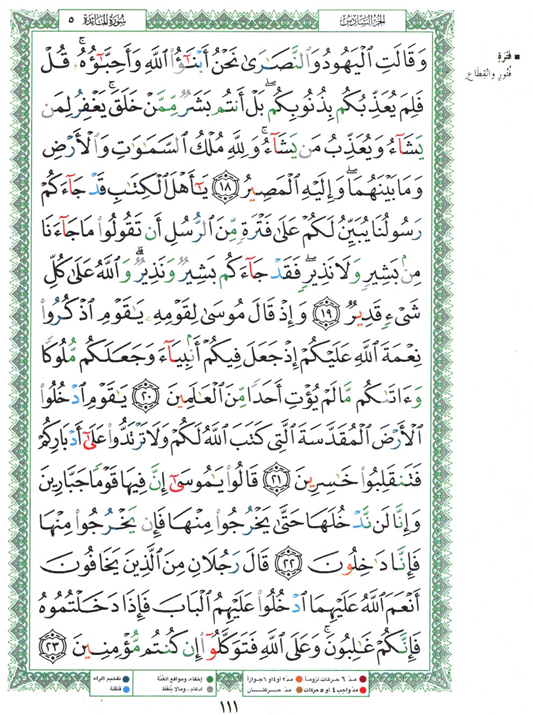 سُورَةُ المَائدة ٥
الجزء السادس
وَقَالَتِ ٱلْيَهُودُ وَٱلنَّصَٰرَىٰ نَحْنُ أَبْنَٰٓؤُا۟ ٱللَّهِ وَأَحِبَّٰٓؤُهُۥ ۚ قُلْ
فَلِمَ يُعَذِّبُكُم بِذُنُوبِكُم ۖ بَلْ أَنتُم بَشَرٌ مِّمَّنْ خَلَقَ ۚ يَغْفِرُ لِمَن
يَشَآءُ وَيُعَذِّبُ مَن يَشَآءُ ۚ وَلِلَّهِ مُلْكُ ٱلسَّمَٰوَٰتِ وَٱلْأَرْضِ
وَمَا بَيْنَهُمَا ۖ وَإِلَيْهِ ٱلْمَصِيرُ ﴿١٨﴾ يَٰٓأَهْلَ ٱلْكِتَٰبِ قَدْ جَآءَكُمْ
رَسُولُنَا يُبَيِّنُ لَكُمْ عَلَىٰ فَتْرَةٍ مِّنَ ٱلرُّسُلِ أَن تَقُولُوا۟ مَا جَآءَنَا
مِنۢ بَشِيرٍ وَلَا نَذِيرٍ ۖ فَقَدْ جَآءَكُم بَشِيرٌ وَنَذِيرٌ ۗ وَٱللَّهُ عَلَىٰ كُلِّ
شَىْءٍ قَدِيرٌ ﴿١٩﴾ وَإِذْ قَالَ مُوسَىٰ لِقَوْمِهِۦ يَٰقَوْمِ ٱذْكُرُوا۟
نِعْمَةَ ٱللَّهِ عَلَيْكُمْ إِذْ جَعَلَ فِيكُمْ أَنۢبِيَآءَ وَجَعَلَكُم مُّلُوكًا
وَءَاتَىٰكُم مَّا لَمْ يُؤْتِ أَحَدًا مِّنَ ٱلْعَٰلَمِينَ ﴿٢٠﴾ يَٰقَوْمِ ٱدْخُلُوا۟
ٱلْأَرْضَ ٱلْمُقَدَّسَةَ ٱلَّتِى كَتَبَ ٱللَّهُ لَكُمْ وَلَا تَرْتَدُّوا۟ عَلَىٰٓ أَدْبَارِكُمْ
فَتَنقَلِبُوا۟ خَٰسِرِينَ ﴿٢١﴾ قَالُوا۟ يَٰمُوسَىٰٓ إِنَّ فِيهَا قَوْمًا جَبَّارِينَ
وَإِنَّا لَن نَّدْخُلَهَا حَتَّىٰ يَخْرُجُوا۟ مِنْهَا فَإِن يَخْرُجُوا۟ مِنْهَا
فَإِنَّا دَٰخِلُونَ ﴿٢٢﴾ قَالَ رَجُلَانِ مِنَ ٱلَّذِينَ يَخَافُونَ
أَنْعَمَ ٱللَّهُ عَلَيْهِمَا ٱدْخُلُوا۟ عَلَيْهِمُ ٱلْبَابَ فَإِذَا دَخَلْتُمُوهُ
فَإِنَّكُمْ غَٰلِبُونَ ۚ وَعَلَى ٱللَّهِ فَتَوَكَّلُوٓا۟ إِن كُنتُم مُّؤْمِنِينَ ﴿٢٣﴾
■ فَتْرَةٍ
فُتُورٍ وانْقِطَاعٍ
مدّ ٦ حركات لزوماً ● مدّ ٢ أو ٤ أو ٦ جوازاً ● إخفاء، ومواقع الغُنَّة ● تفخيم الراء
مدّ واجب ٤ أو ٥ حركات ● مدّ حركتان ● ادغام، وما لا يُلفَظ ● قلقلة
١١١